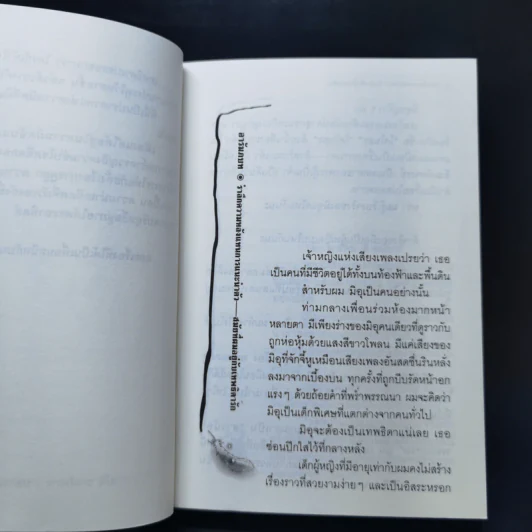 เจ้าหญิงแห่งเสียงเพลงเปรยว่า เธอ
เป็นคนที่มีชีวิตอยู่ได้ทั้งบนท้องฟ้าและพื้นดิน
สำหรับผม มิอุเป็นคนอย่างนั้น
ท่ามกลางเพื่อนร่วมห้องมากหน้า
หลายตา มีเพียงร่างของมิอุคนเดียวที่ดูราวกับ
ถูกห่อหุ้มด้วยแสงสีขาวไพลน มีแค่เสียงของ
มิอุที่จั๊กจี้หูเหมือนเสียงเพลงอันสดชื่นรินหลั่ง
ลงมาจากเบื้องบน ทุกครั้งที่ถูกบีบรัดหน้าอก
แรงๆ ด้วยถ้อยคำที่พร่ำพรรณนา ผมจะคิดว่า
มิอุเป็นเด็กพิเศษที่แตกต่างจากคนทั่วไป
มิอุจะต้องเป็นเทพธิดาแน่เลย เธอ
ซ่อนปีกใสไว้ที่กลางหลัง
เด็กผู้หญิงที่มีอายุเท่ากับผมคงไม่สร้าง
เรื่องราวที่สวยงามง่ายๆ และเป็นอิสระหรอก